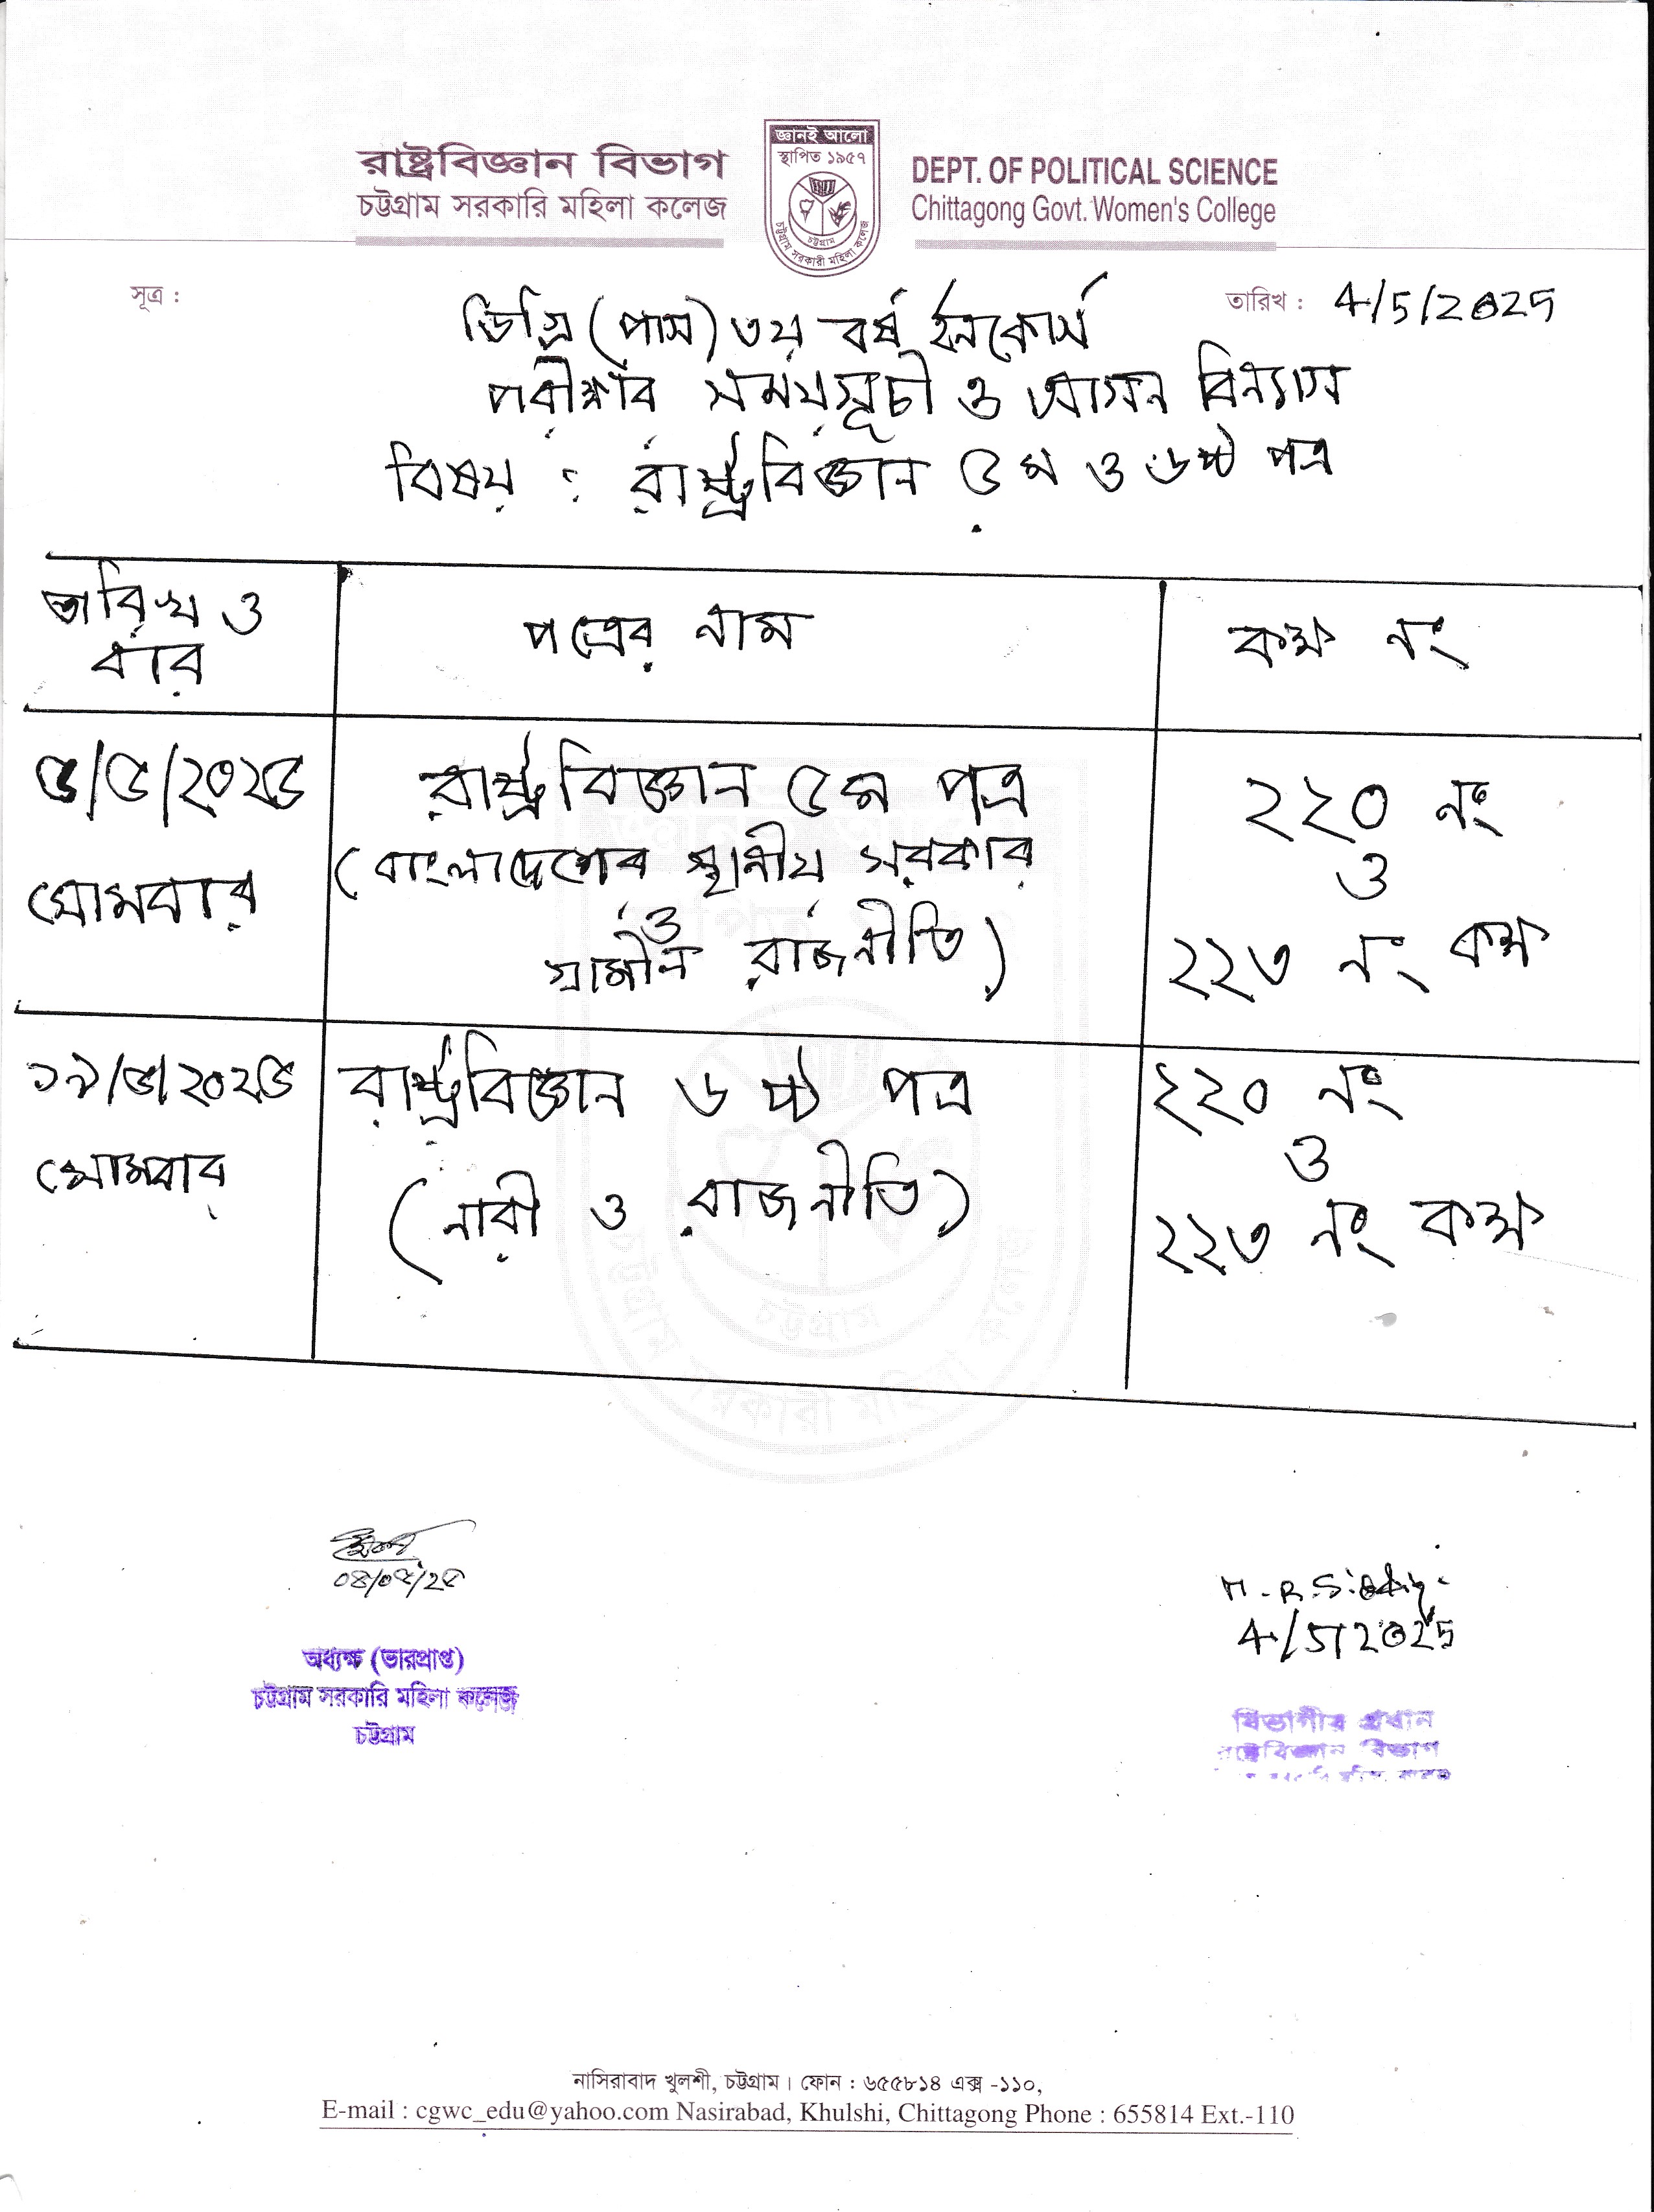 রাষ্ট্রবিজ্ঞান বিভাগ
চট্টগ্রাম সরকারি মহিলা কলেজ
জ্ঞানই আলো
স্থাপিত ১৯৫৭
চট্টগ্রাম
চট্টগ্রাম সরকারী মহিলা কলেজ
DEPT. OF POLITICAL SCIENCE
Chittagong Govt. Women's College
সূত্র :
তারিখ : 4/5/2025
ডিগ্রি (পাস) ৩য় বর্ষ ইনকোর্স
পরীক্ষার সময়সূচী ও আসন বিন্যাস
বিষয় : রাষ্ট্রবিজ্ঞান ৫ম ও ৬ষ্ঠ পত্র
তারিখ ও
বার
পত্রের নাম
কক্ষ নং
৫/৫/২০২৫
সোমবার
রাষ্ট্রবিজ্ঞান ৫ম পত্র
(বাংলাদেশের স্থানীয় সরকার
ও
গ্রামীন রাজনীতি)
২২০ নং
ও
২২৩ নং কক্ষ
১৯/৫/২০২৫
সোমবার
রাষ্ট্রবিজ্ঞান ৬ষ্ঠ পত্র
(নারী ও রাজনীতি)
২২০ নং
ও
২২৩ নং কক্ষ
০৪/০৫/২৫
অধ্যক্ষ (ভারপ্রাপ্ত)
চট্টগ্রাম সরকারি মহিলা কলেজ
চট্টগ্রাম
M.R.Siddiq
4/5/2025
বিভাগীয় প্রধান
রাষ্ট্রবিজ্ঞান বিভাগ
নাসিরাবাদ খুলশী, চট্টগ্রাম। ফোন : ৬৫৫৮১৪ এক্স -১১০,
E-mail : cgwc_edu@yahoo.com Nasirabad, Khulshi, Chittagong Phone : 655814 Ext.-110